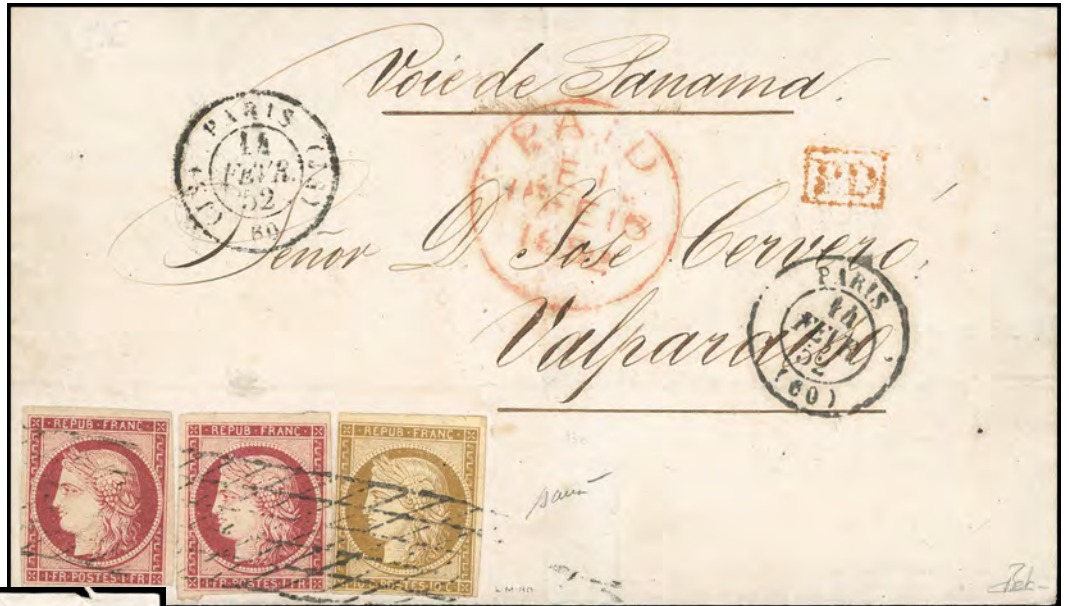 Voie de Panama.
PARIS
14
FEVR.
52
(60)
PAID
1852
PD
Señor D. Jose Cervero,
Valparaiso.
PARIS
14
FEVR.
52
(60)
REPUB·FRANC
REPUB·FRANC
REPUB·FRANC
1·FR·POSTES·1·FR
1·FR·POSTES·1·FR
10·C·POSTES·10·C